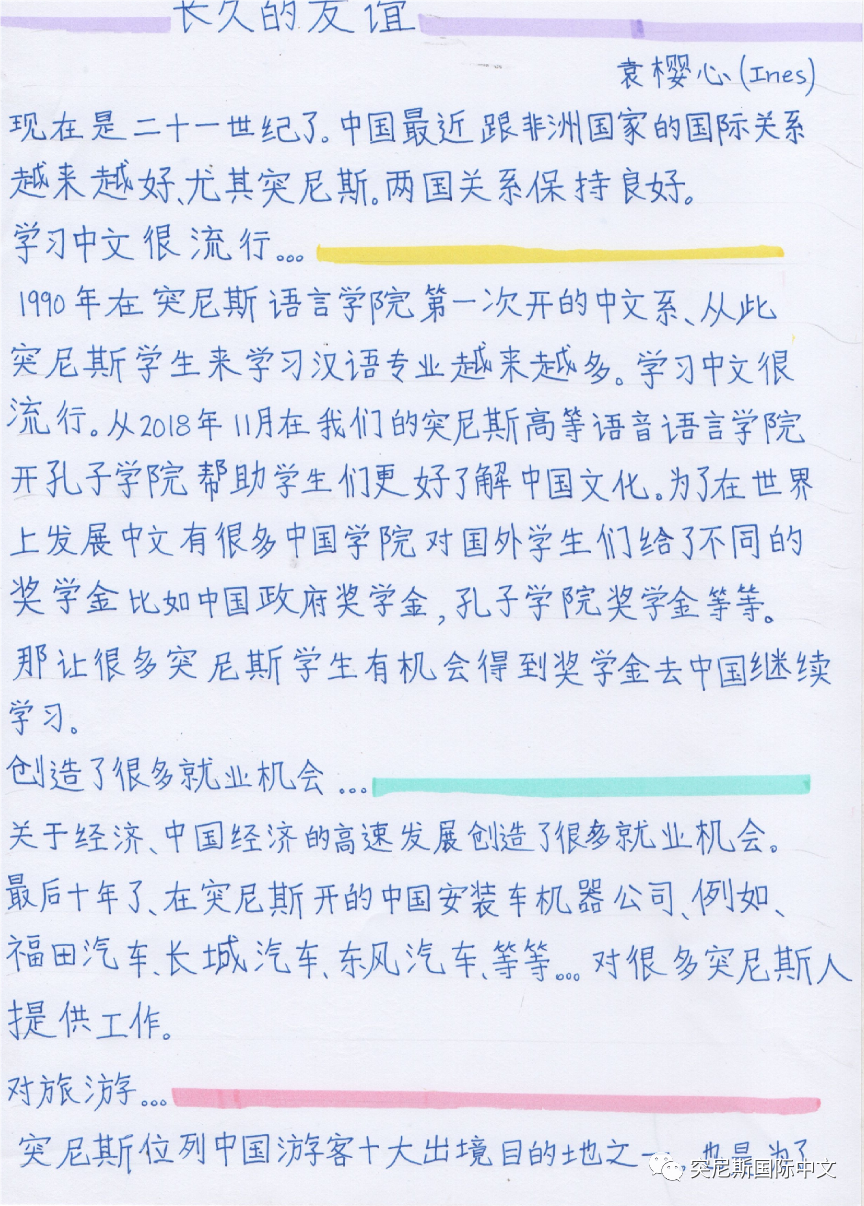 长久的友谊
袁樱心(Ines)
现在是二十一世纪了。中国最近跟非洲国家的国际关系
越来越好、尤其突尼斯。两国关系保持良好。
学习中文很流行...
1990年在突尼斯语言学院第一次开的中文系、从此
突尼斯学生来学习汉语专业越来越多。学习中文很
流行。从2018年11月在我们的突尼斯高等语音语言学院
开孔子学院帮助学生们更好了解中国文化。为了在世界
上发展中文有很多中国学院对国外学生们给了不同的
奖学金比如中国政府奖学金,孔子学院奖学金等等。
那让很多突尼斯学生有机会得到奖学金去中国继续
学习。
创造了很多就业机会...
关于经济、中国经济的高速发展创造了很多就业机会。
最后十年了、在突尼斯开的中国安装车机器公司、例如、
福田汽车、长城汽车、东风汽车、等等... 对很多突尼斯人
提供工作。
对旅游...
突尼斯位列中国游客十大出境目的地之一。也是为了
突尼斯国际中文